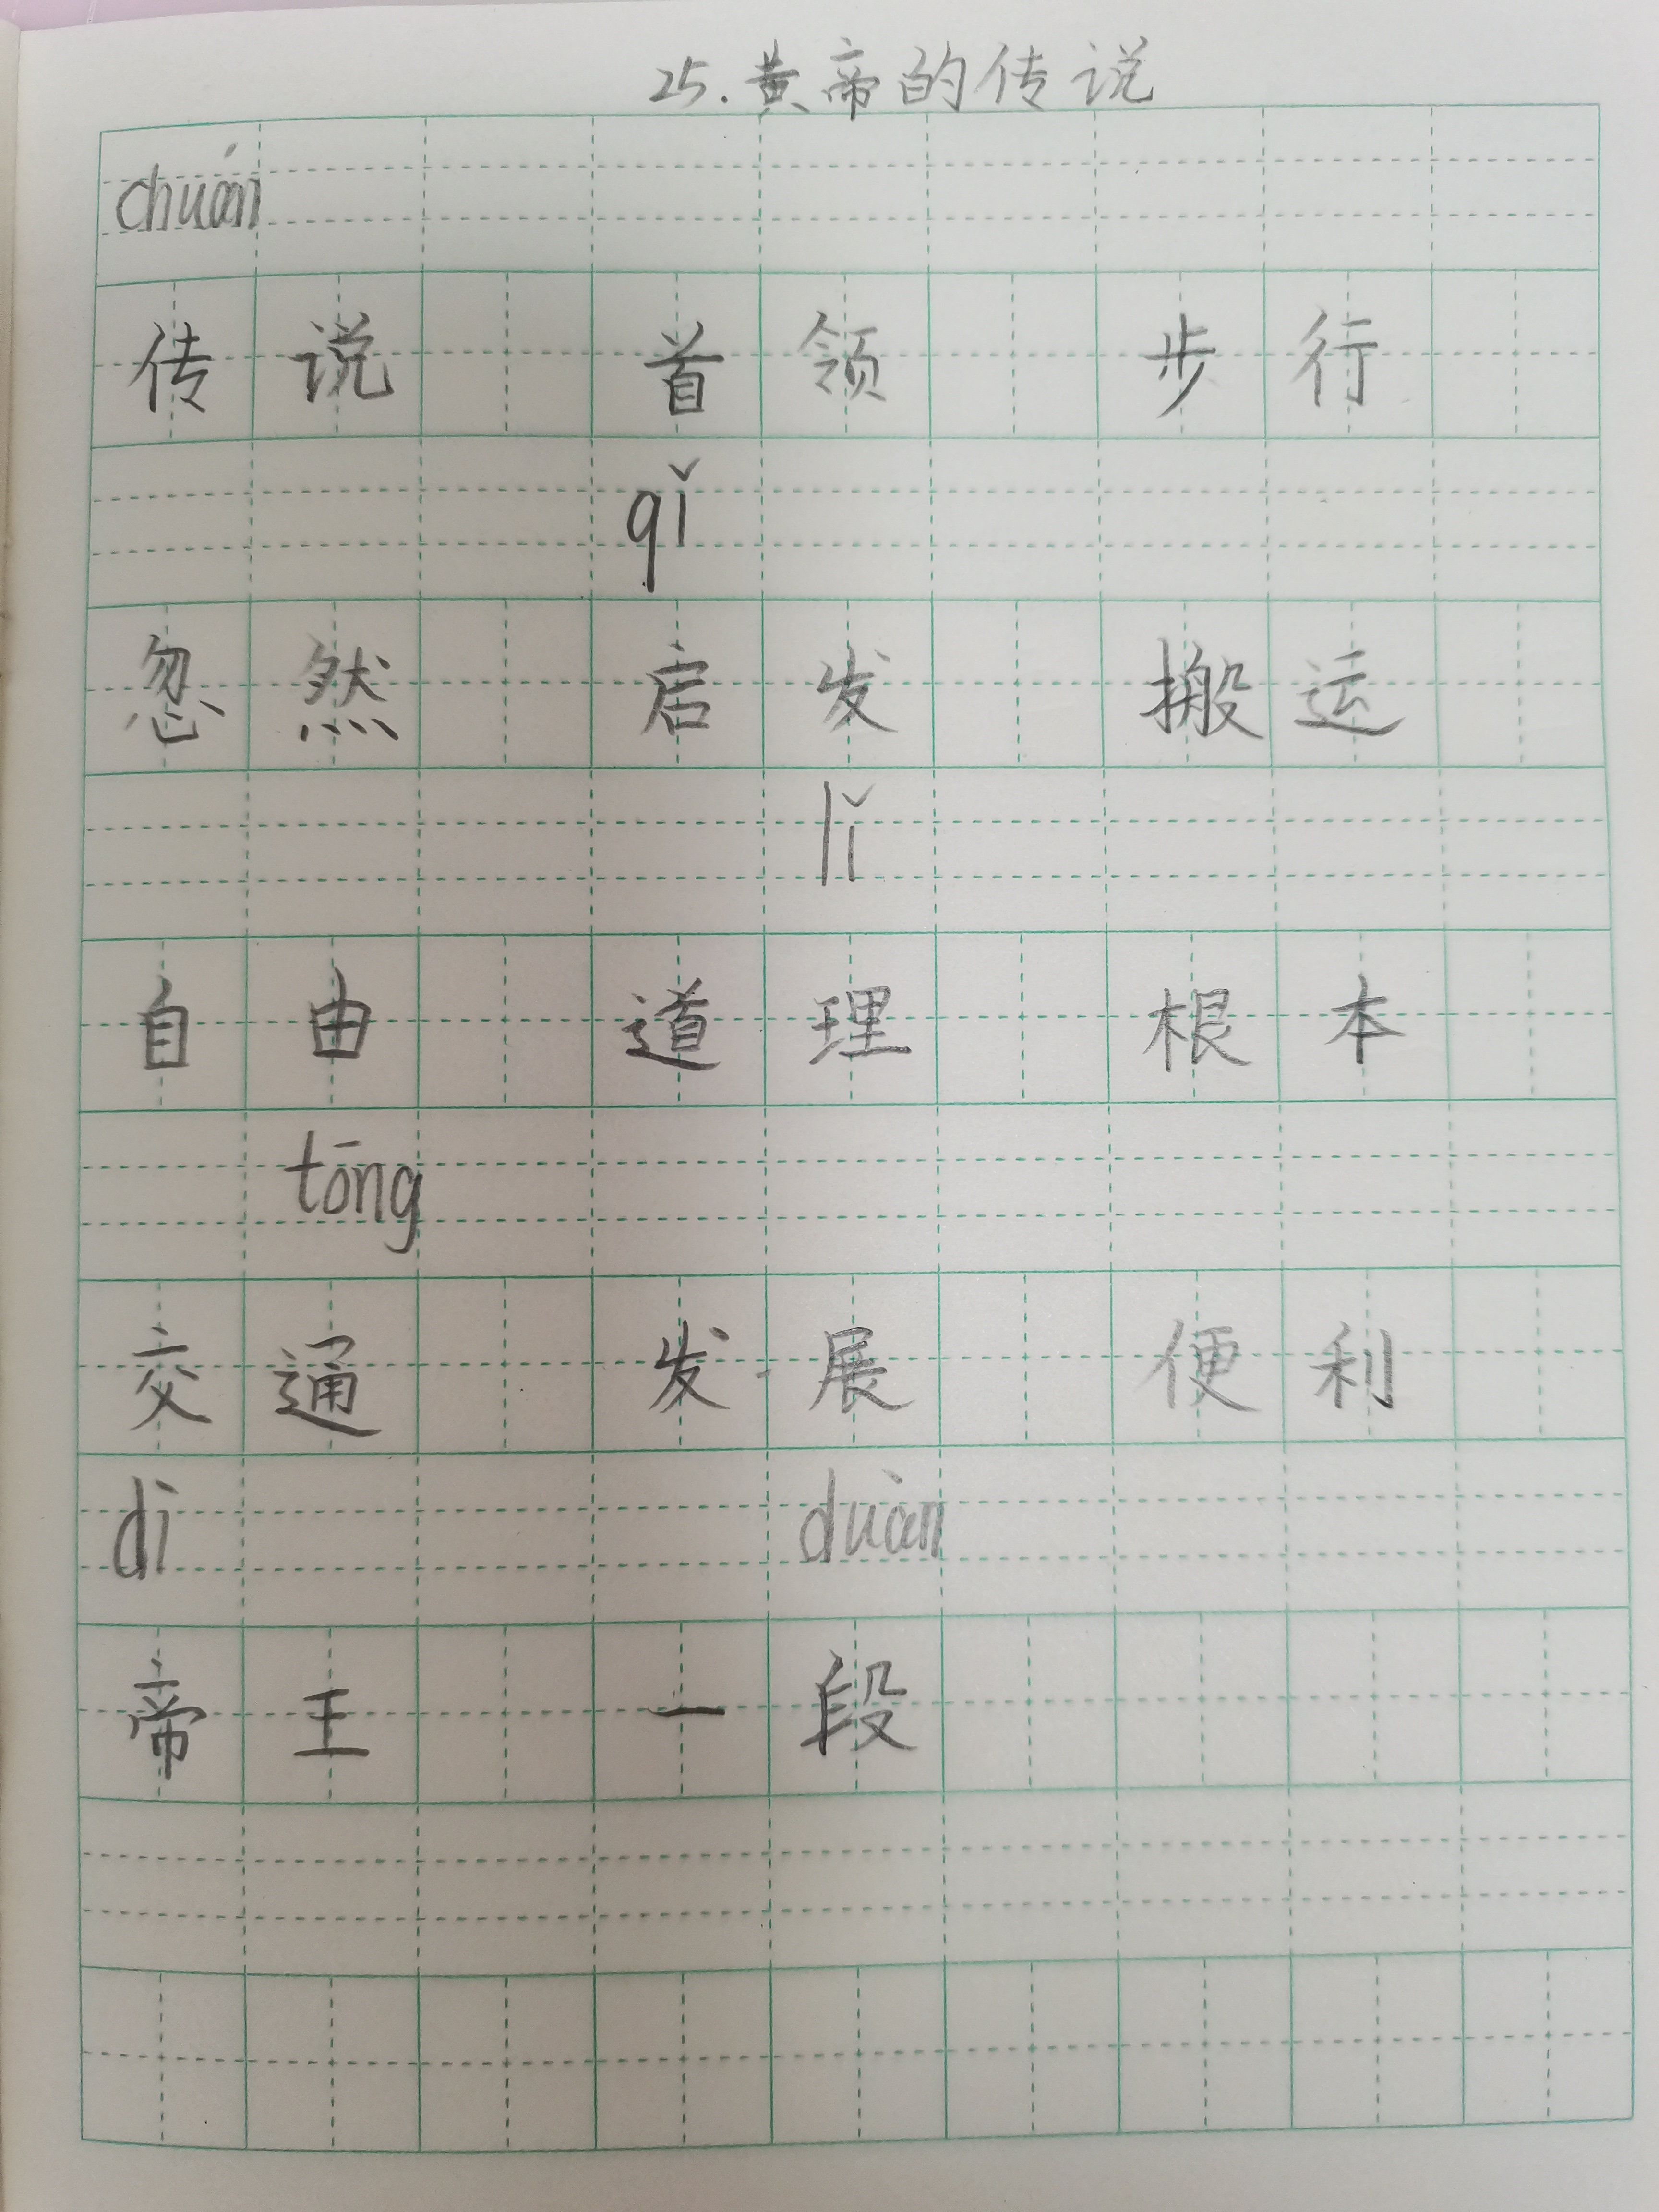 25.黄帝的传说
chuán
传说 首领 步行
qǐ
忽然 启发 搬运
lǐ
自由 道理 根本
tōng
交通 发展 便利
dì duàn
帝王 一段